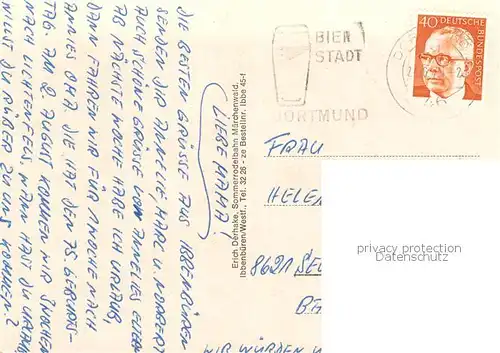 LIEBE MAMA!
DIE BESTEN GRÜSSE AUS IBBENBÜREN
SENDEN DIR ANNELIE, MARC U. NORBERT
AUCH SCHÖNE GRÜSSE VON ANNELIES ELTERN
AB NÄCHSTE WOCHE HABE ICH URLAUB,
DANN FAHREN WIR FÜR 1 WOCHE NACH
ANNIES OMA DIE HAT DEN 75 GEBURTS-
TAG AM 2 AUGUST KOMMEN WIR 3 WOCHEN
NACH LICHTENFELS, WANN HAST DU URLAUB,
WILLST DU RÜBER ZU UNS KOMMEN?
WIR WÜRDEN
Erich Derhake, Sommerrodelbahn Märchenwald,
Ibbenbüren/Westf., Tel. 32 26 - ze Bestellnr. Ibbe 45-f
BIER
STADT
DORTMUND
40 DEUTSCHE
BUNDESPOST
FRAU
HELEN
8621
privacy protection
for our customers